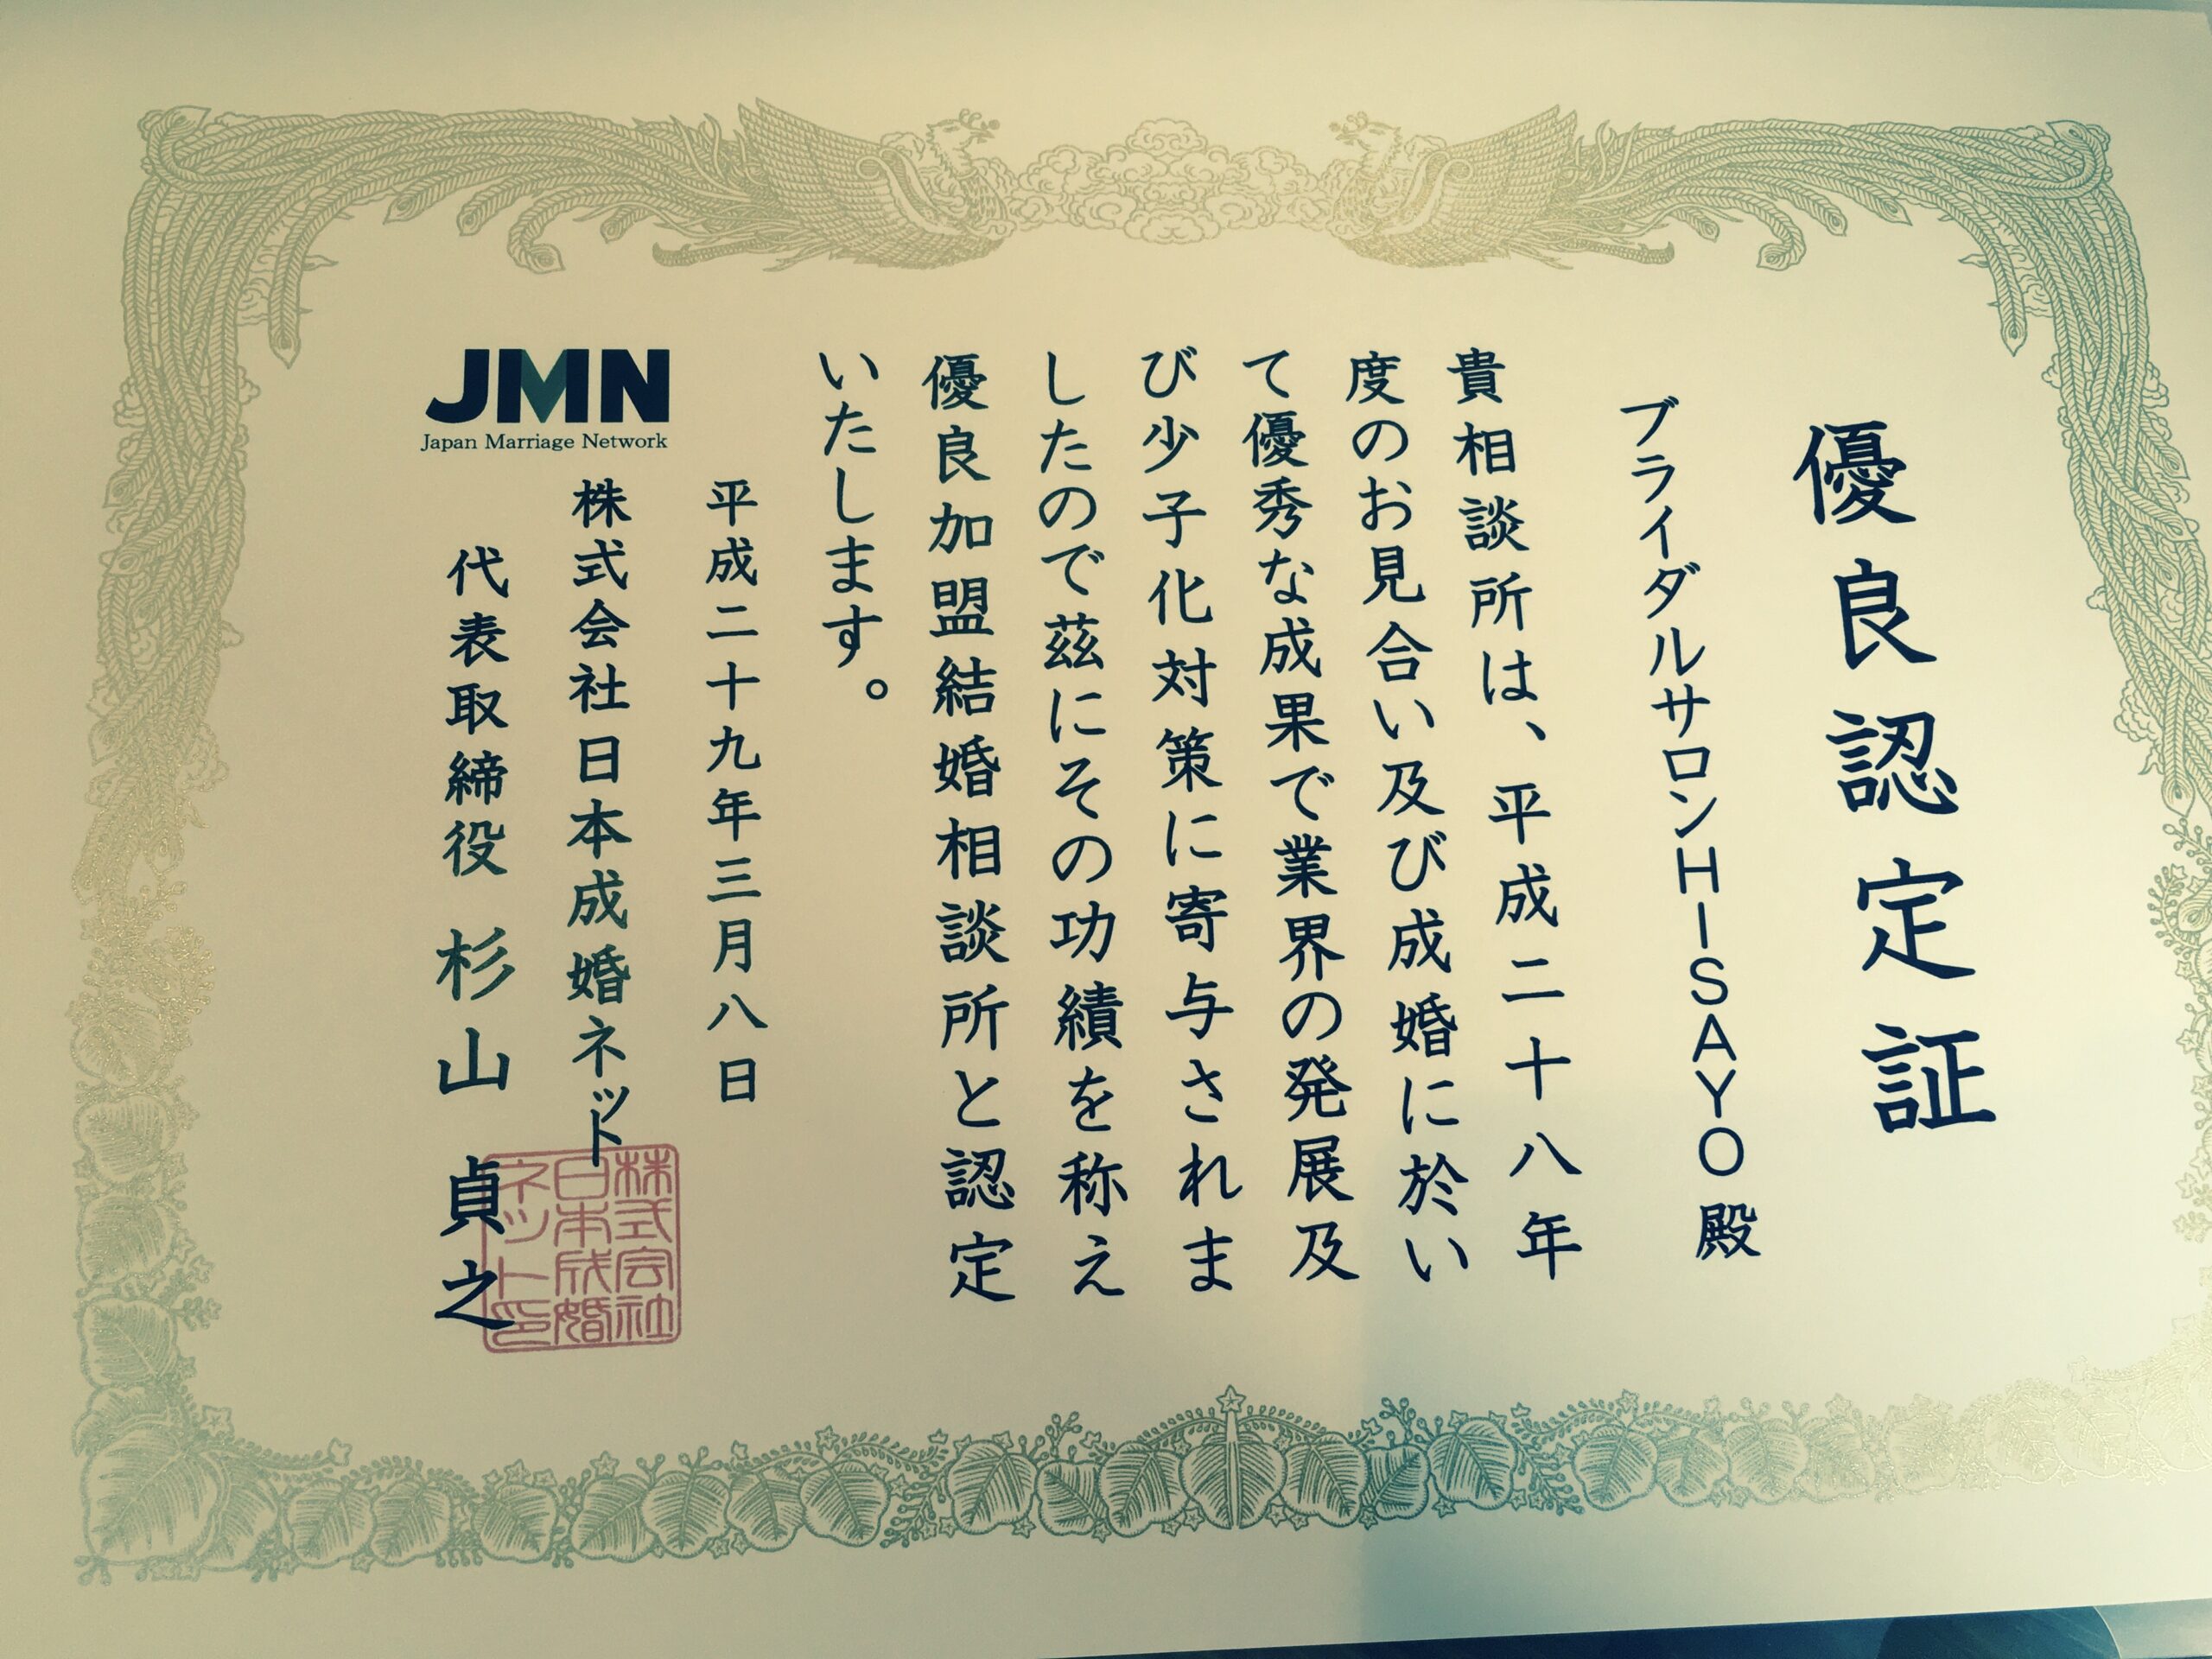 優良認定証
ブライダルサロンHISAYO殿
貴相談所は、平成二十八年
度のお見合い及び成婚に於い
て優秀な成果で業界の発展及
び少子化対策に寄与されま
したので茲にその功績を称え
優良加盟結婚相談所と認定
いたします。
平成二十九年三月八日
JMN
Japan Marriage Network
株式会社日本成婚ネット
代表取締役 杉山 貞之
株式会社
日本成婚
ネット印